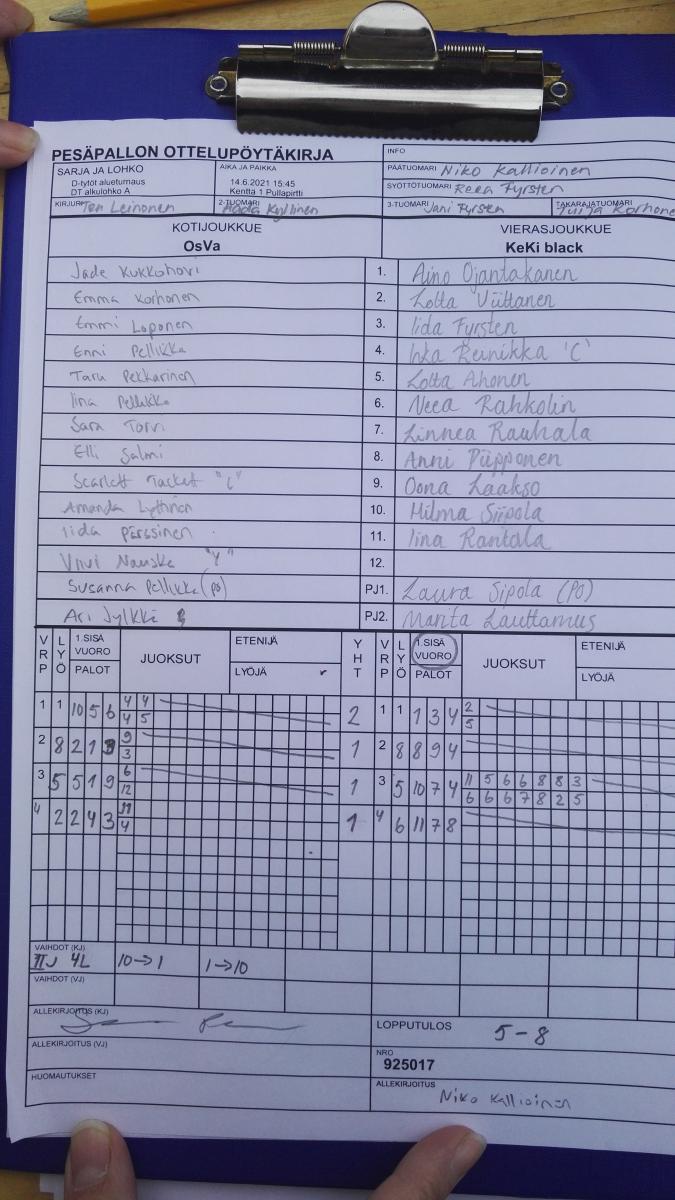 PESÄPALLON OTTELUPÖYTÄKIRJA
INFO
SARJA JA LOHKO
D-tytöt alueturnaus
DT alkulohko A
AIKA JA PAIKKA
14.6.2021 15:45
Kenttä 1 Pullapirtti
PÄÄTUOMARI Niko Kallioinen
SYÖTTÖTUOMARI Reea Fyrsten
KIRJURI Leinonen
2-TUOMARI
3-TUOMARI Jani Fyrsten
TAKARAJATUOMARI Korhone
KOTIJOUKKUE
OsVa
VIERASJOUKKUE
KeKi black
Jade Kukkohovi 1. Aino Ojantakanen
Emma Korhonen 2. Lotta Viittanen
Emmi Loponen 3. Iida Fyrsten
Enni Pellikka 4. Inka Reinikka 'C'
Taru Pekkarinen 5. Lotta Ahonen
Iina Pellikka 6. Neea Rahkolin
Sara Torvi 7. Linnea Rauhala
Elli Salmi 8. Anni Piipponen
Scarlett Tacket "C" 9. Oona Laakso
Amanda Lyttinen 10. Hilma Siipola
Iida Pärssinen 11. Iina Rantala
Viivi "V" 12.
Susanna Pellikka (po) PJ1. Laura Sipola (PO)
Ari Jylkkä PJ2. Marita Lauttamus
VRP LYÖ 1.SISÄ VUORO PALOT JUOKSUT ETENIJÄ LYÖJÄ YHT VRP LYÖ 1.SISÄ VUORO PALOT JUOKSUT ETENIJÄ LYÖJÄ
1 1 10 5 6 4 4 2 1 1 1 3 4 2
4 5 5
2 8 2 1 3 9 1 2 8 8 9 4
3
3 5 5 1 9 6 1 3 5 10 7 4 11 5 6 6 8 8 3
12 6 6 6 7 8 2 5
4 2 2 4 3 1 4 6 11 7 8
4
VAIHDOT (KJ)
IIJ 4L 10→1 1→10
VAIHDOT (VJ)
ALLEKIRJOITUS (KJ)
LOPPUTULOS 5-8
ALLEKIRJOITUS (VJ)
NRO
925017
HUOMAUTUKSET
ALLEKIRJOITUS
Niko Kallioinen